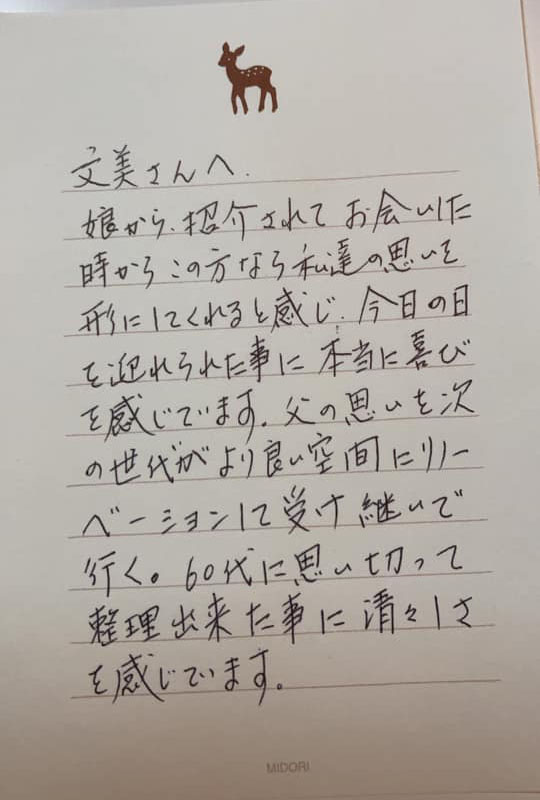 文美さんへ.
娘から、紹介されて お会いした
時から この方なら 私達の思いを
形にしてくれると感じ、今日の日
を迎れられた事に 本当に喜び
を感じています。父の思いを次
の世代がより良い空間にリノ
ベーションして受け継いで
行く。60代に思い切って
整理出来た事に清々しさ
を感じています。
MIDORI